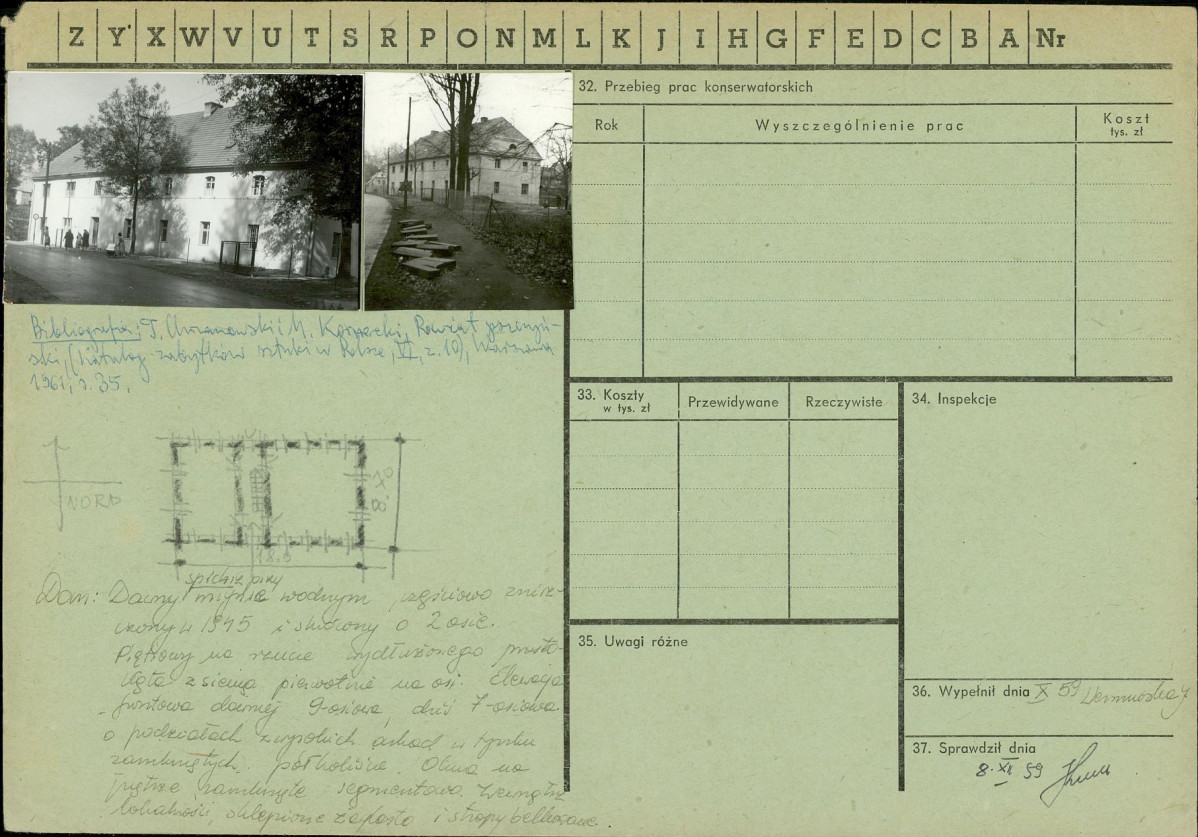 Z Y X W V U T S R P O N M L K J I H G F E D C B A Nr
32. Przebieg prac konserwatorskich
Rok
Wyszczególnienie prac
Koszt
tys. zł
Bibliografia: T. Chrzanowski i M. Kornecki, Powiat
ski, (Katalog zabytków sztuki w Polsce, VI, z. 10), Warszawa
1961, s. 35.
NORD
18.5
spichrz przy
Dom: Dawny młynie wodnym częściowo znisz-
czony w 1945 i skrócony o 2 osie.
Piętrowy na rzucie wydłużonego prosto-
kąta z sienią pierwotnie na osi. Elewacja
frontowa dawniej 9-osiowa, dziś 7-osiowa
o podziałach z wysokich arkad w tynku
zamkniętych półkoliście. Okna na
piętrze zamknięte segmentowo. Wewnątrz
sklepione i stropy belkowane.
33. Koszty
w tys. zł
Przewidywane
Rzeczywiste
34. Inspekcje
35. Uwagi różne
36. Wypełnił dnia X 59
37. Sprawdził dnia
8. XII 59